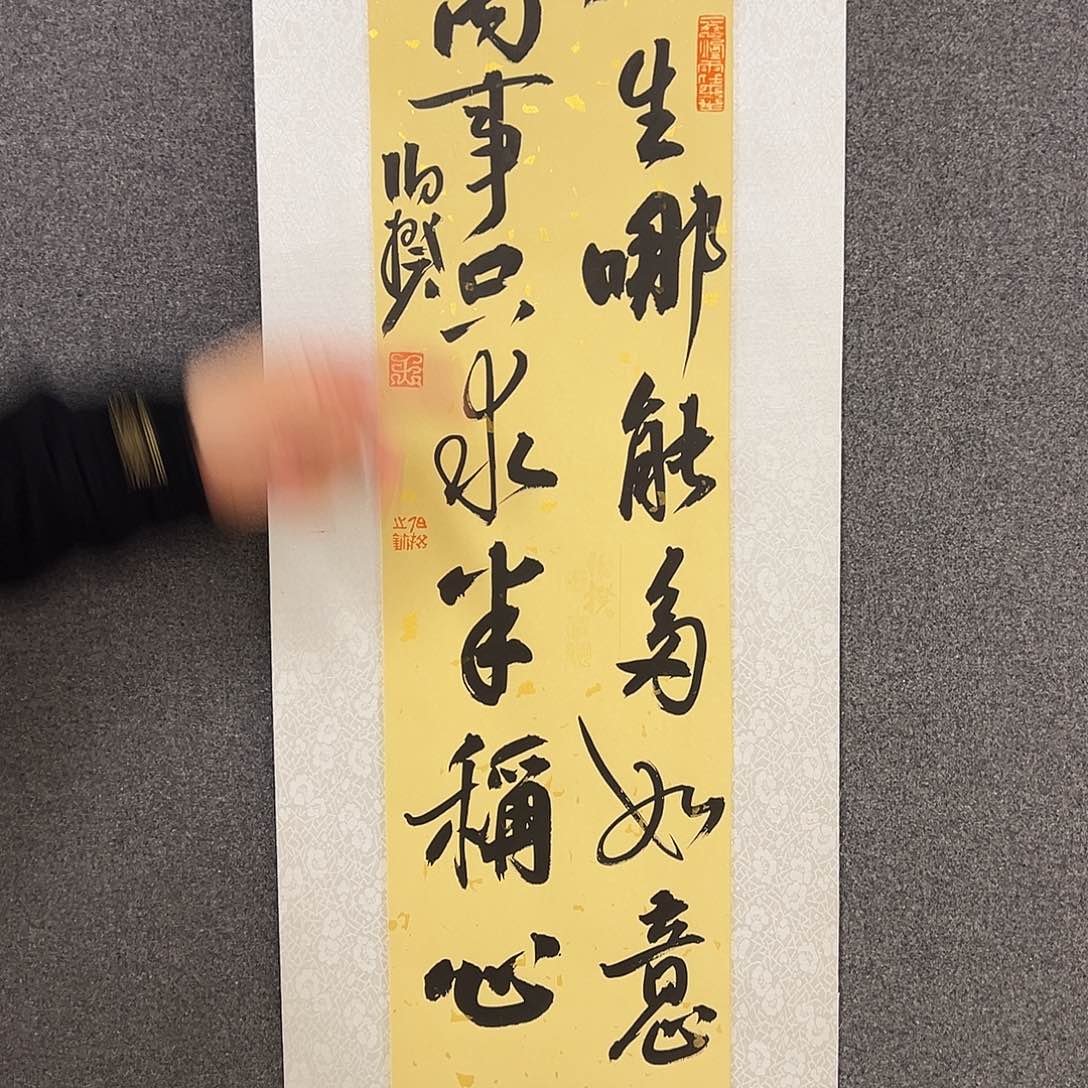 生哪能多如意
萬事只求半稱心